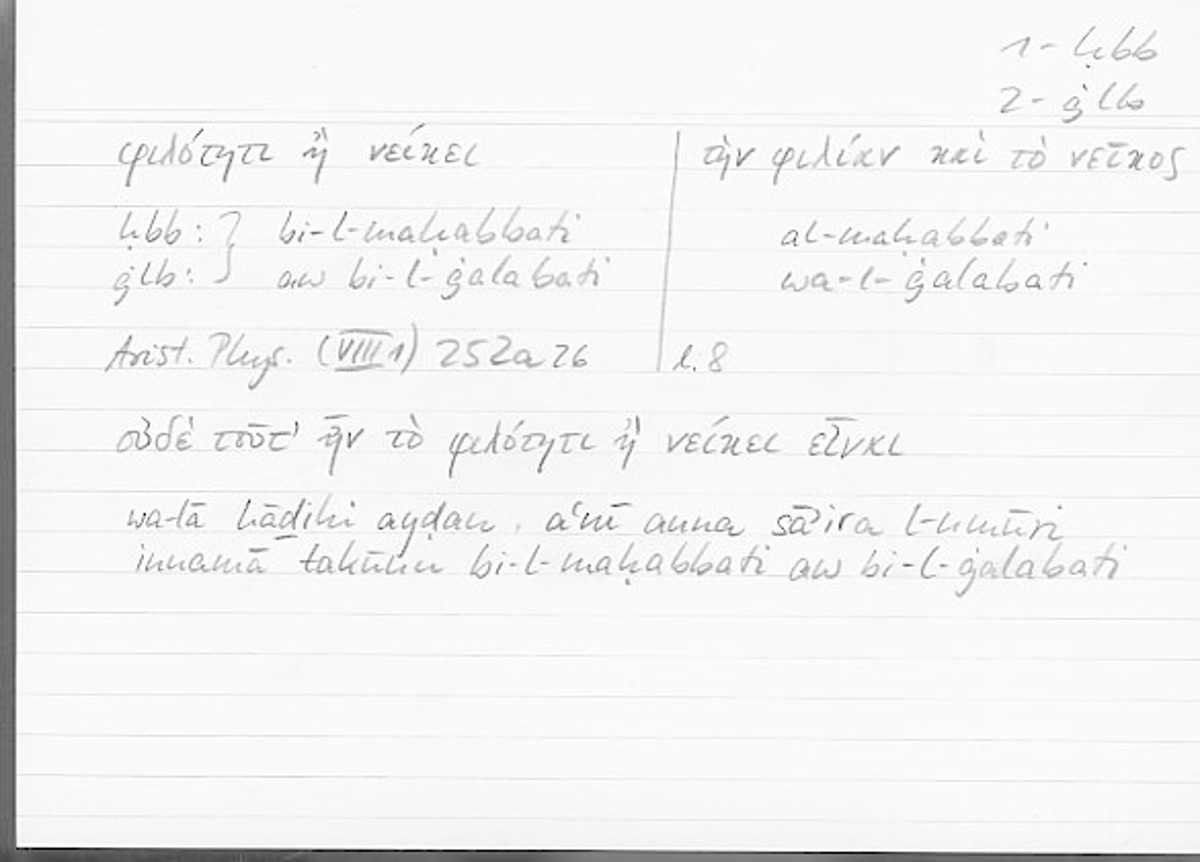 1- ḥbb
2- ġlb
φιλότητι ἢ νείκει | τὴν φιλίαν καὶ τὸ νεῖκος
ḥbb: } bi-l-maḥabbati al-maḥabbati
ġlb: } aw bi-l-ġalabati wa-l-ġalabati
Arist. Phys. (VIII 1) 252a26 | l. 8
οὐδὲ τοῦτ' ἦν τὸ φιλότητι ἢ νείκει εἶναι
wa-lā hāḏihi ayḍan, aʿnī anna sāʾira l-umūri
innamā takūnu bi-l-maḥabbati aw bi-l-ġalabati